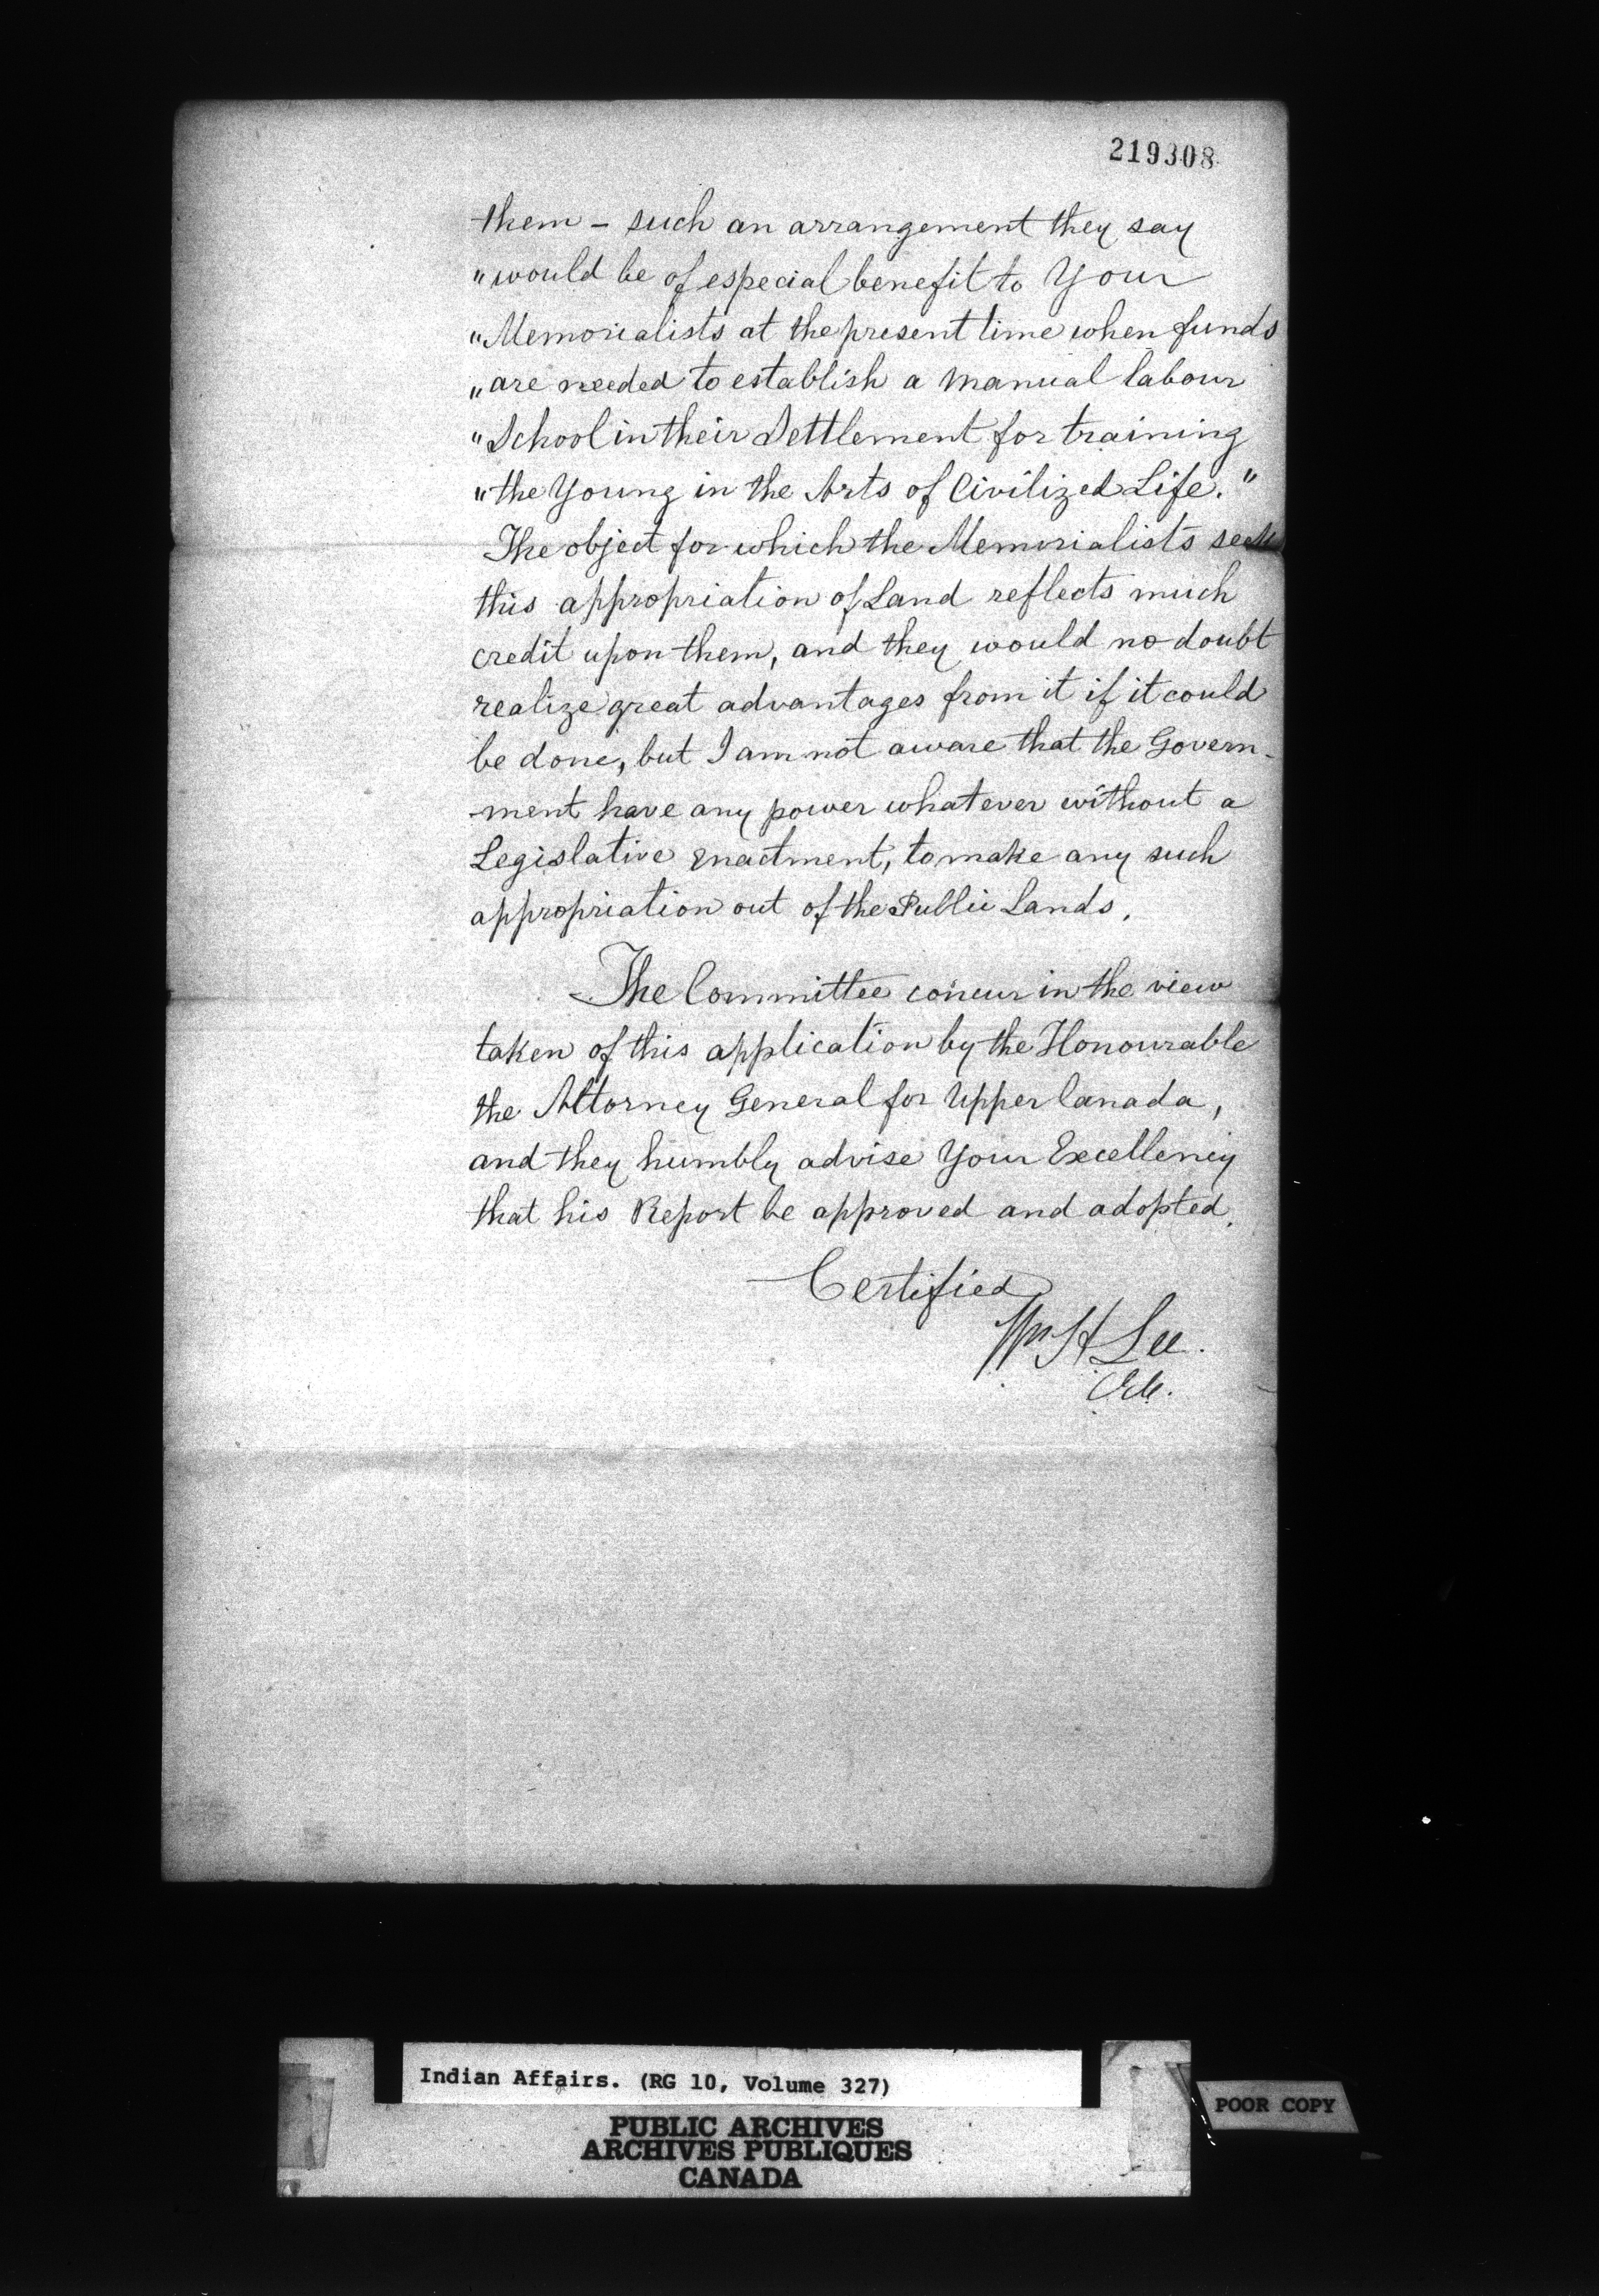 219308
them - such an arrangement they say
"would be of especial benefit to Your
"Memorialists at the present time when funds
"are needed to establish a manual labour
"School in their Settlement for training
"the Young in the Arts of Civilized Life."
The object for which the Memorialists seek
this appropriation of Land reflects much
credit upon them, and they would no doubt
realize great advantages from it if it could
be done, but I am not aware that the Govern-
-ment have any power whatever without a
Legislative enactment, to make any such
appropriation out of the Public Lands.
The Committee concur in the view
taken of this application by the Honourable
the Attorney General for Upper Canada,
and they humbly advise Your Excellency
that his Report be approved and adopted.
Certified
Wm H Lee.
Indian Affairs. (RG 10, Volume 327)
PUBLIC ARCHIVES
ARCHIVES PUBLIQUES
CANADA
POOR COPY